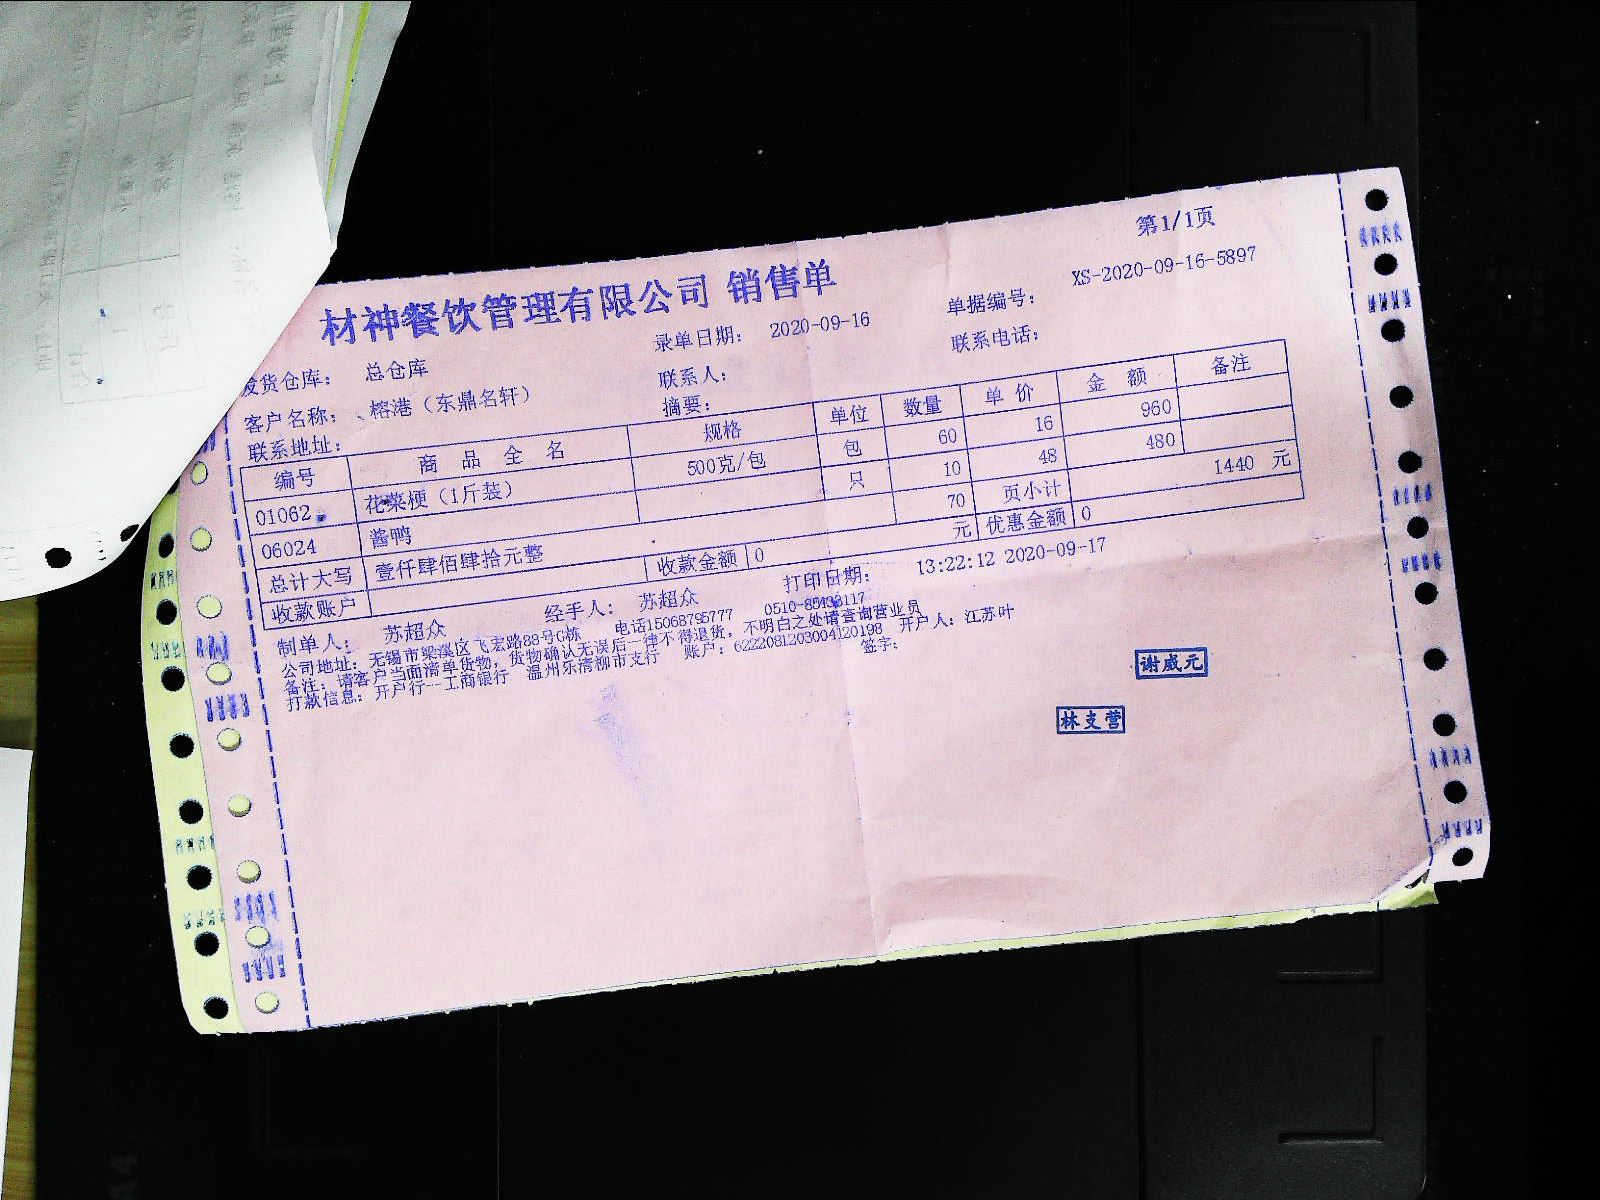 第1/1页
材神餐饮管理有限公司 销售单
录单日期： 2020-09-16 单据编号： XS-2020-09-16-5897
发货仓库： 总仓库 联系人： 联系电话：
客户名称： 榕港（东鼎名轩） 摘要：
联系地址：
编号 商 品 全 名 规格 单位 数量 单 价 金 额 备注
01062 花菜梗（1斤装） 500克/包 包 60 16 960
06024 酱鸭 只 10 48 480
总计大写 壹仟肆佰肆拾元整 70 页小计 1440 元
收款账户 收款金额 0 元 优惠金额 0
制单人： 苏超众 经手人： 苏超众 打印日期： 13:22:12 2020-09-17
公司地址：无锡市梁溪区飞宏路88号G栋 电话15068795777
备注：请客户当面清单货物，货物确认无误后一律不得退货，不明白之处请查询营业员
打款信息：开户行--工商银行 温州乐清柳市支行 账户：6222081203004120198 开户人：江苏叶
签字：
谢威元
林支营